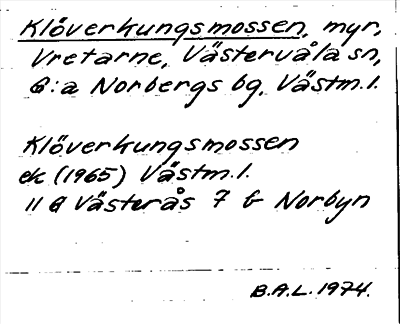 Klöverkungsmossen, myr,
Vretarne, Västervåla sn,
G:a Norbergs bg, Västm.l.
Klöverkungsmossen
ek (1965) Västm.l.
11 G Västerås 7 b Norbyn
B.A.L. 1974.